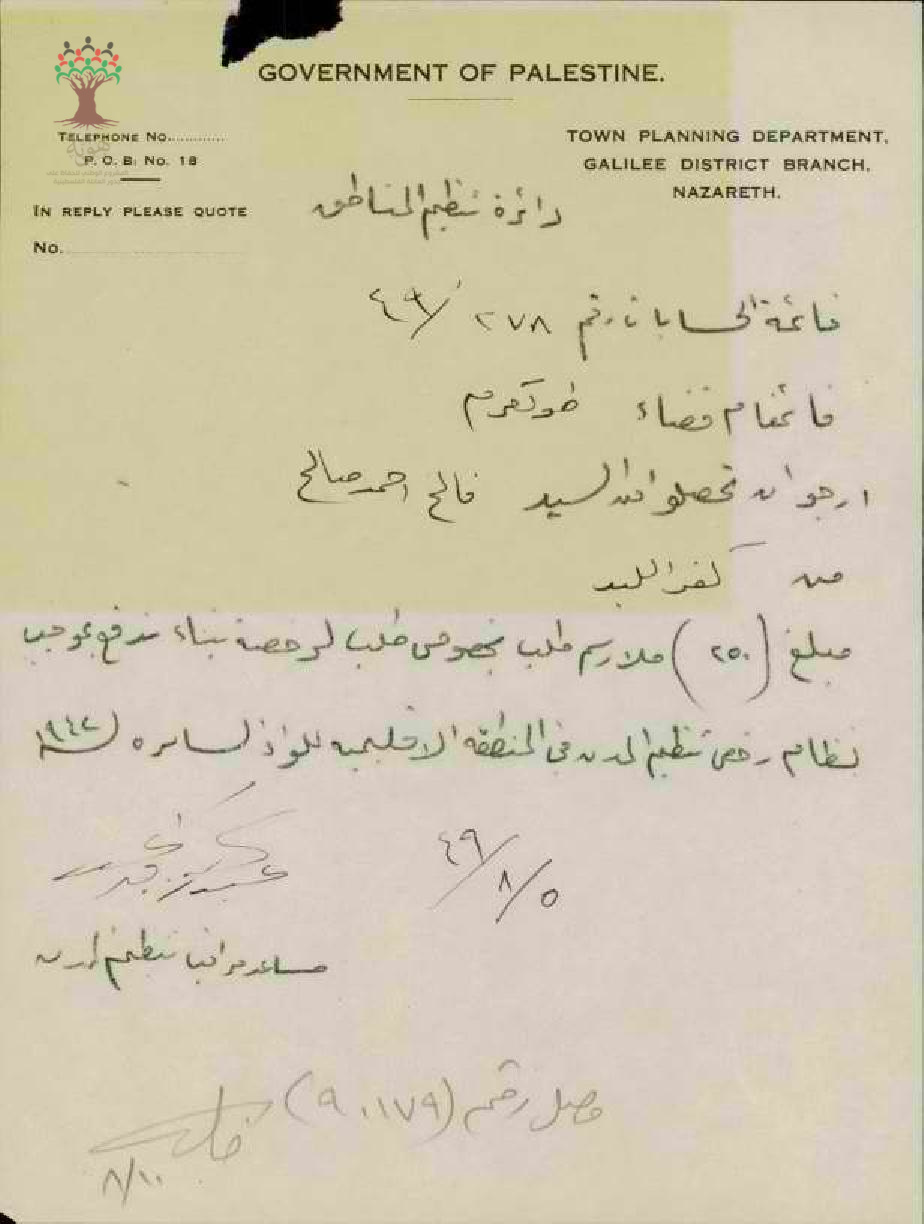 GOVERNMENT OF PALESTINE.
TELEPHONE NO.............
P. O. B. No. 18
TOWN PLANNING DEPARTMENT,
GALILEE DISTRICT BRANCH,
NAZARETH.
IN REPLY PLEASE QUOTE
No.
هوية
دائرة تنظيم المناطق
قائمة الحسابات رقم ٢٧٨ /٤٩
قائمقام قضاء طولكرم
ارجو ان تحصلوا من السيد فالح احمد صالح
من كفر اللبد
مبلغ (٢٥٠) ملا رسم طلب بخصوص طلب لرخصة بناء تدفع بموجب
نظام رخص تنظيم المدن في المنطقة الاقليمية للواء السامره لسنة ١٩٤٢
٤٩/٨/٥
مساعد مراقب تنظيم المدن
وصل رقم (٩٠١٧٩)
٨/١٠